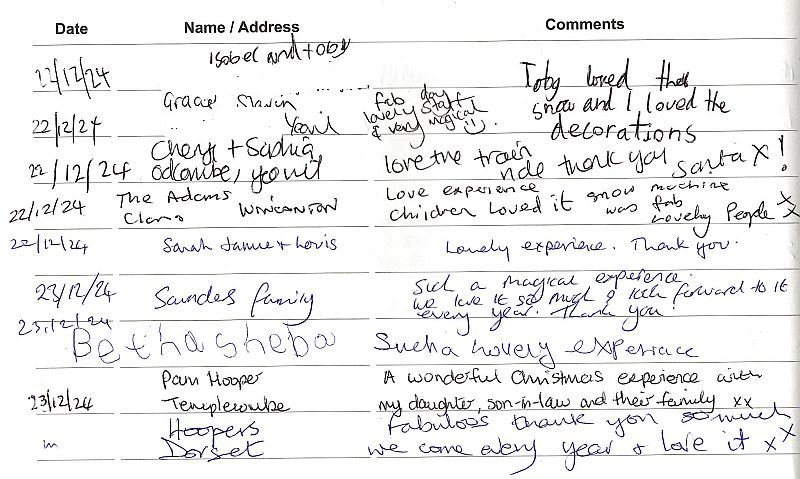 Date Name / Address Comments
Isobel and Toby
22/12/24 Toby loved the
snow and I loved the
decorations
Gracie
22/12/24 Yeovil fab day
lovely staff
& very magical
Cheryl + Sophia
22/12/24 odcombe, yeovil love the train
ride thank you Santa X!
The Adams Love experience snow machine
22/12/24 Clans WINCANTON children loved it was fab
Lovely People X X
22/12/24 Sarah Jamie + Lovis Lovely experience. Thank you.
23/12/24 Saunders family Such a magical experience.
we love it so much & look forward to it
every year. Thank you!
23/12/24
Bethasheba Sucha lovery experiace
Pam Hooper A wonderful Christmas experience with
23/12/24 Templecombe my daughter, son-in-law and their family xx
Hoopers Fabuloss thank you so much
Dorset we come every year + love it x X